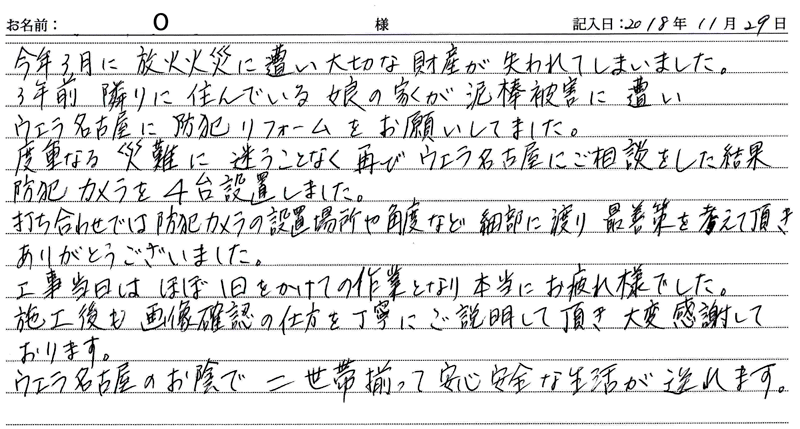 お名前： O 様 記入日：2018年11月29日
今年3月に 放火火災に遭い大切な財産が失われてしまいました。
3年前 隣りに住んでいる娘の家が泥棒被害に遭い
ウェラ名古屋に防犯リフォームをお願いしてました。
度重なる災難に 迷うことなく再びウェラ名古屋にご相談をした結果
防犯カメラを4台設置しました。
打ち合わせでは防犯カメラの設置場所や角度など細部に渡り最善策を考えて頂き
ありがとうございました。
工事当日はほぼ1日をかけての作業となり本当にお疲れ様でした。
施工後も画像確認の仕方を丁寧にご説明して頂き大変感謝して
おります。
ウェラ名古屋のお陰で二世帯揃って安心安全な生活が送れます。